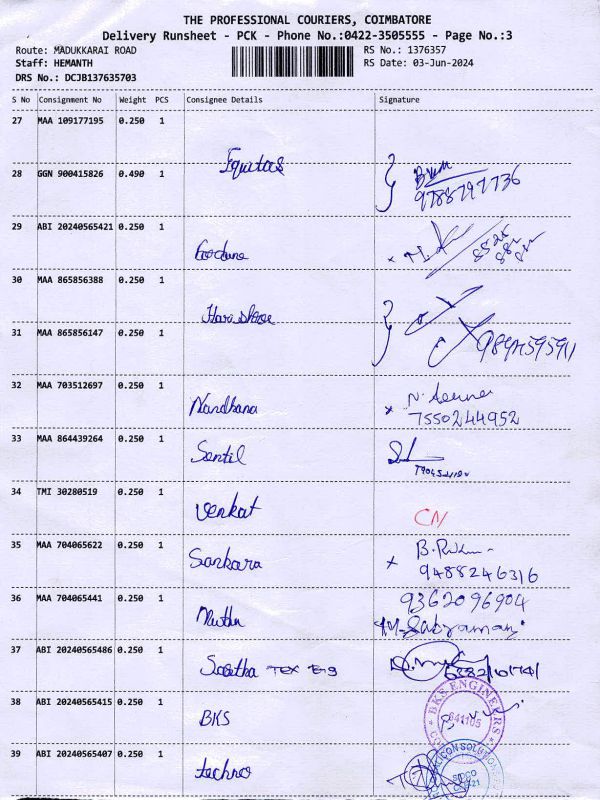 THE PROFESSIONAL COURIERS, COIMBATORE
Delivery Runsheet - PCK - Phone No.:0422-3505555 - Page No.:3
Route: MADUKKARAI ROAD RS No.: 1376357
Staff: HEMANTH RS Date: 03-Jun-2024
DRS No.: DCJB137635703
S No Consignment No Weight PCS Consignee Details Signature
27 MAA 109177195 0.250 1
Equitas
28 GGN 900415826 0.490 1
9788797736
29 ABI 20240565421 0.250 1
30 MAA 865856388 0.250 1
31 MAA 865856147 0.250 1
32 MAA 703512697 0.250 1
Nandhana
7550244952
33 MAA 864439264 0.250 1
Sentil
34 TMI 30280519 0.250 1
Venkat CN
35 MAA 704065622 0.250 1
Sankara
9488246316
36 MAA 704065441 0.250 1
9362096904
37 ABI 20240565486 0.250 1
38 ABI 20240565415 0.250 1
BKS
BKS ENGINEERS
641105
39 ABI 20240565407 0.250 1
techno
SIDCO